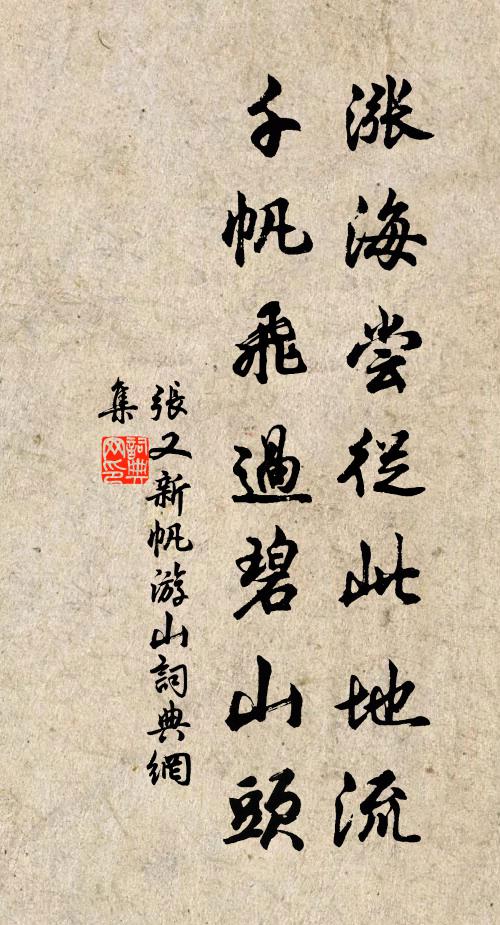 涨海尝從此地流
千帆飛過碧山頭
張又新帆游山詞典網
集
詞典网印